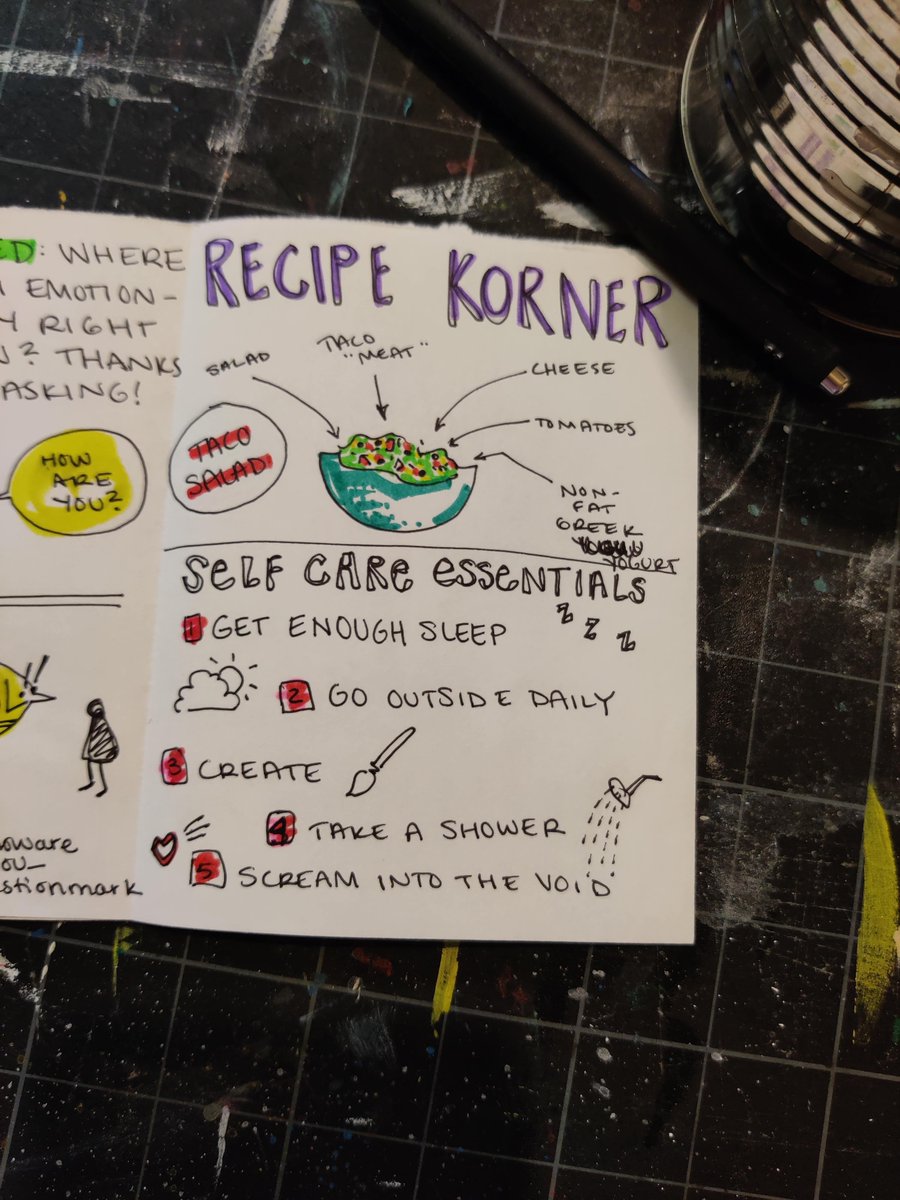 ED: WHERE
EMOTION-
Y RIGHT
? THANKS
ASKING!
HOW
ARE
YOU?
oware
ou_
stionmark
RECIPE KORNER
SALAD
TACO
"MEAT"
CHEESE
TOMATOES
NON-
FAT
GREEK
YOGURT
TACO
SALAD
SELF CARE ESSENTIALS
Z Z Z
1 GET ENOUGH SLEEP
2 GO OUTSIDE DAILY
3 CREATE
4 TAKE A SHOWER
5 SCREAM INTO THE VOID